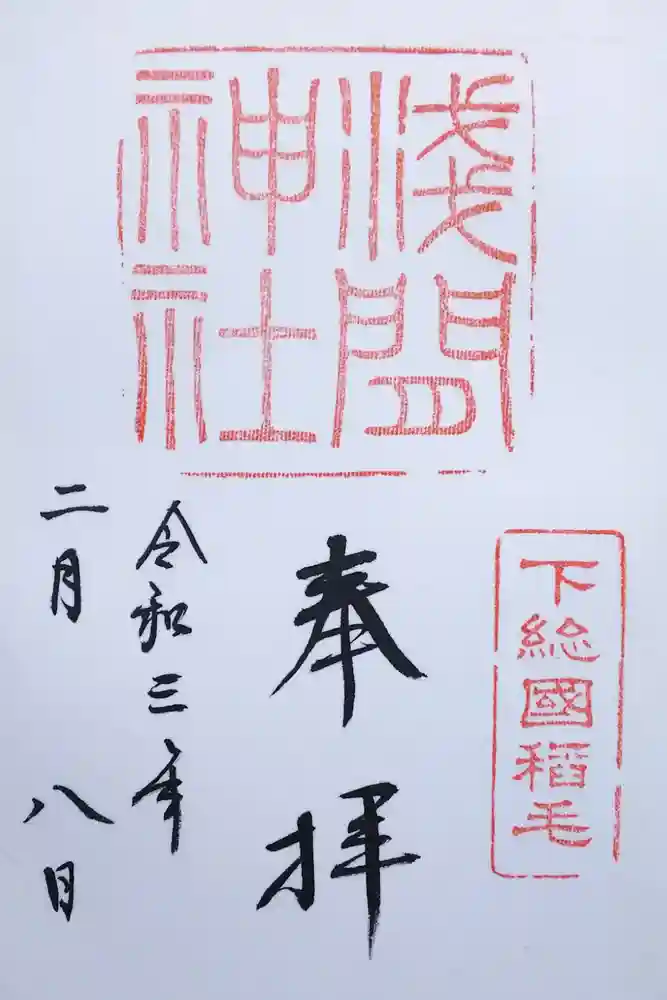 浅間
神社
下総國稲毛
奉拝
令和三年
二月八日